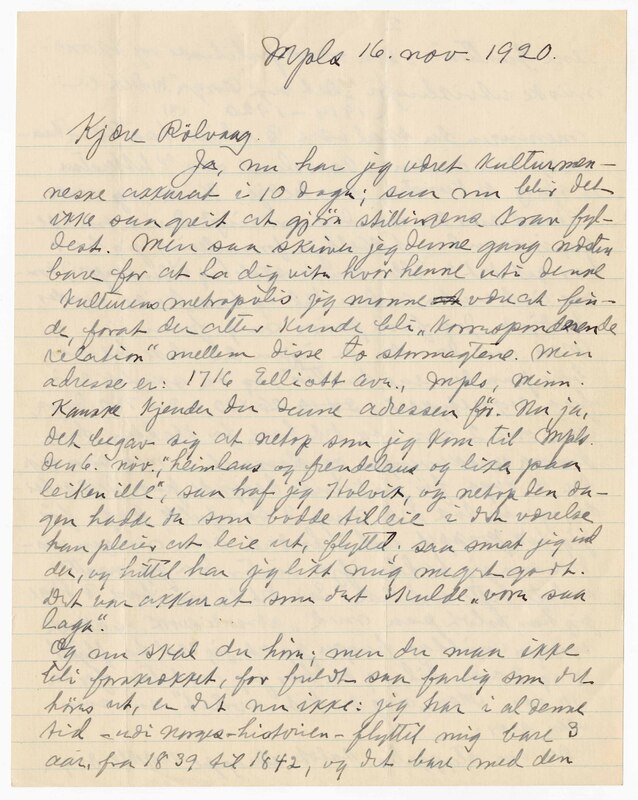 Mpls 16. nov. 1920.
Kjære Rölvaag.
Ja, nu har jeg været Kulturmen-
neske akkurat i 10 dage; saa nu blir det
ikke saa greit at gjöre stillingens krav fyl-
dest. Men saa skriver jeg denne gang næsten
bare for at la dig vite hvor henne uti denne
Kulturens metropolis jeg monne være at fin-
de, forat der atter kunde bli „korresponderende
relation" mellem disse to stormagtene. Min
adresse er: 1716 Elliott ave., Mpls, Minn.
Kanske kjender du denne adressen för. Nu ja,
det begav sig at netop som jeg kom til Mpls.
den 6. nov., "heimlaus og frendelaus og lika paa
leiken ille", saa traf jeg Holvik, og netop den da-
gen hadde de som bodde tilleie i det værelse
han pleier at leie ut, flyttet; saa smat jeg ind
der, og hittil har jeg likt mig meget godt.
Det var akkurat som det skulde „vora saa
laga".
Og nu skal du höre; men du maa ikke
bli forskrækket, for fuldt saa farlig som det
höres ut, er det nu ikke: jeg har i al denne
tid - udi Norges-historien - flyttet mig bare 3
aar, fra 1839 til 1842, og det bare med den